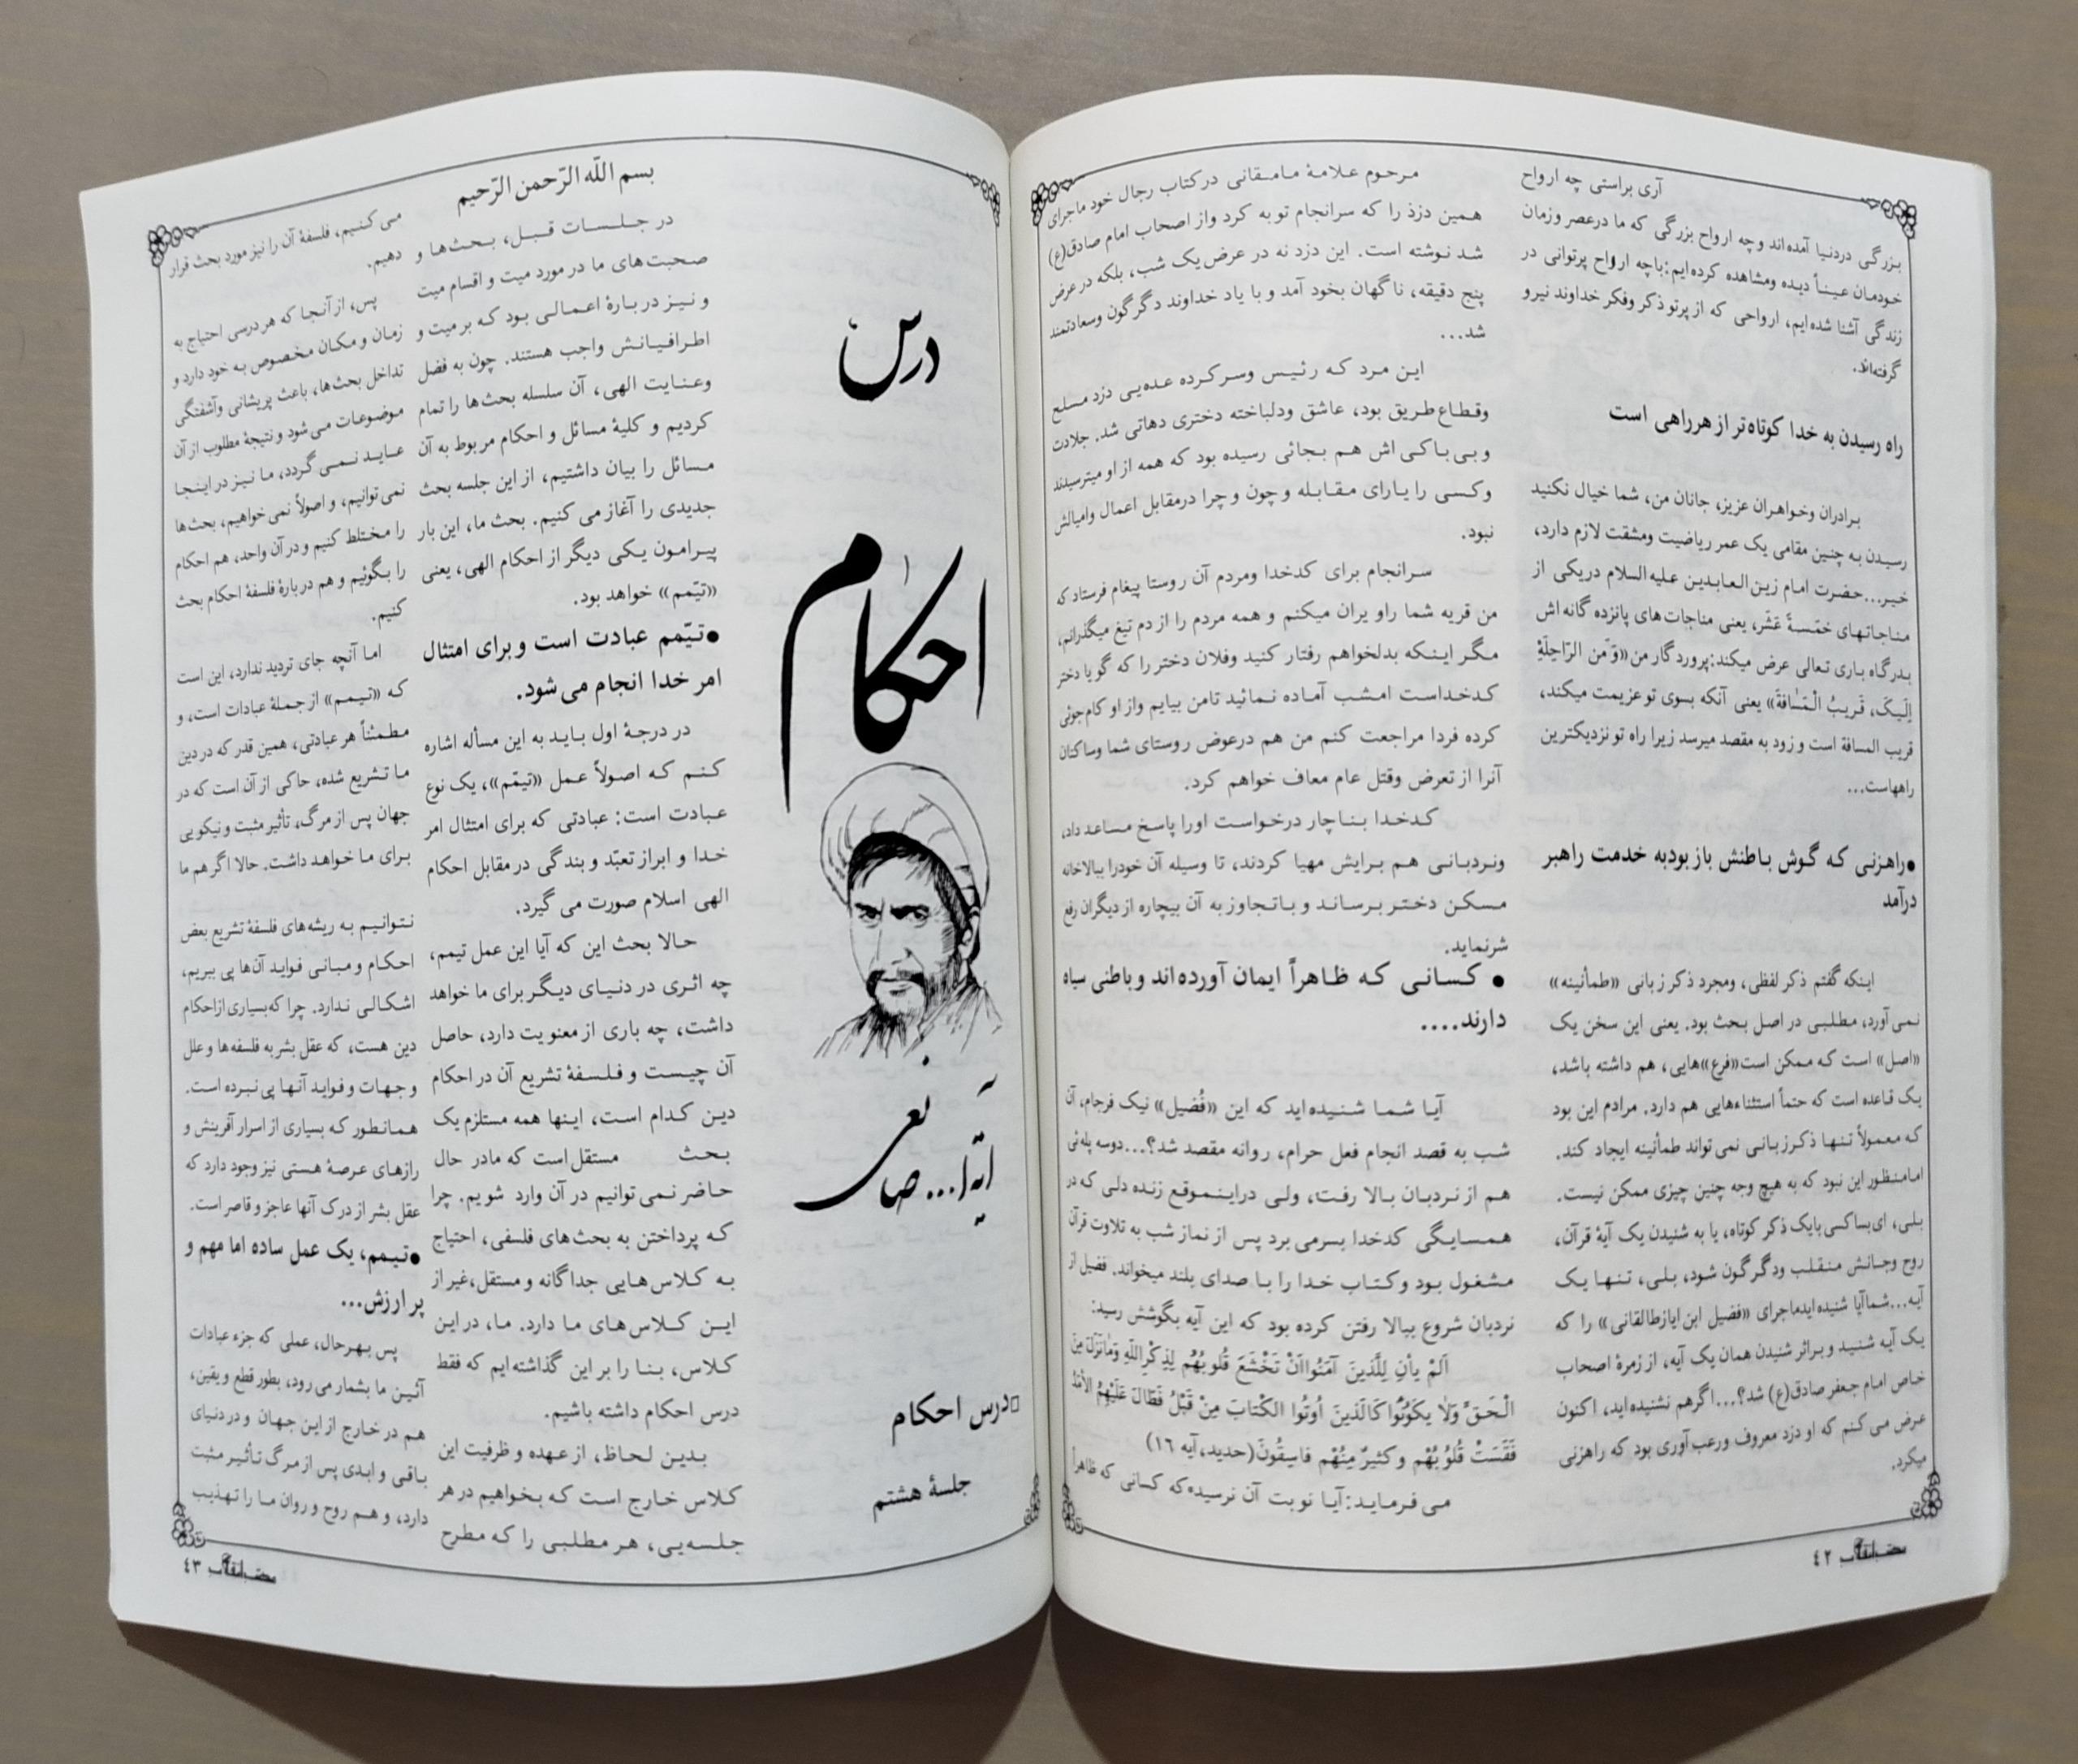 آری براستی چه ارواح
بزرگی دردنیا آمده‌اند وچه ارواح بزرگی که ما درعصر وزمان
خودمان عیناً دیده ومشاهده کرده‌ایم:باچه ارواح پرتوانی در
زندگی آشنا شده‌ایم، ارواحی که از پرتو ذکر وفکر خداوند نیرو
گرفته‌اند.
راه رسیدن به خدا کوتاه‌تر از هرراهی است
برادران وخواهران عزیز، جانان من، شما خیال نکنید
رسیدن به چنین مقامی یک عمر ریاضیت ومشقت لازم دارد،
خیر...حضرت امام زین‌العابدین علیه‌السلام دریکی از
مناجاتهای خَمْسةَ عَشَر، یعنی مناجات‌های پانزده گانه‌اش
بدرگاه باری تعالی عرض میکند:پروردگار من«وَ مَن الرّاحِلَةِ
اِلَیکَ، قَریبُ الْمَسٰافَةَ» یعنی آنکه بسوی تو عزیمت میکند،
قریب المسافة است و زود به مقصد میرسد زیرا راه تو نزدیکترین
راههاست...
●راهزنی که گوش باطنش باز بودبه خدمت راهبر
درآمد
اینکه گفتم ذکر لفظی، ومجرد ذکر زبانی «طمأنینه»
نمی‌آورد، مطلبی در اصل بحث بود. یعنی این سخن یک
«اصل» است که ممکن است«فرع»هایی، هم داشته باشد،
یک قاعده است که حتماً استثناءهایی هم دارد. مرادم این بود
که معمولاً تنها ذکرزبانی نمی‌تواند طمأنینه ایجاد کند.
امامنظور این نبود که به هیچ وجه چنین چیزی ممکن نیست.
بلی، ای‌بساکسی بایک ذکر کوتاه، یا به شنیدن یک آیهٔ قرآن،
روح وجانش منقلب ودگرگون شود، بلی، تنها یک
آیه...شماآیا شنیده‌ایدماجرای «فضیل ابن ایازطالقانی» را که
یک آیه شنید و براثر شنیدن همان یک آیه، از زمرهٔ اصحاب
خاص امام جعفر صادق(ع) شد؟...اگرهم نشنیده‌اید، اکنون
عرض می‌کنم که او دزد معروف ورعب‌آوری بود که راهزنی
میکرد.
مرحوم علامهٔ مامقانی درکتاب رجال خود ماجرای
همین دزذ را که سرانجام توبه کرد واز اصحاب امام صادق(ع)
شد نوشته است. این دزد نه در عرض یک شب، بلکه در عرض
پنج دقیقه، ناگهان بخود آمد و با یاد خداوند دگرگون وسعادتمند
شد...
این مرد که رئیس وسرکرده عده‌یی دزد مسلح
وقطاع‌طریق بود، عاشق ودلباخته دختری دهاتی شد. جلادت
وبی‌باکی‌اش هم بجائی رسیده بود که همه از او میترسیدند
وکسی را یارای مقابله و چون و چرا درمقابل اعمال وامیالش
نبود.
سرانجام برای کدخدا ومردم آن روستا پیغام فرستاد که
من قریه شما راو یران میکنم و همه مردم را از دم تیغ میگذرانم،
مگر اینکه بدلخواهم رفتار کنید وفلان دختر را که گویا دختر
کدخداست امشب آماده نمائید تامن بیایم واز او کام‌جوئی
کرده فردا مراجعت کنم من هم درعوض روستای شما وساکنان
آنرا از تعرض وقتل عام معاف خواهم کرد.
کدخدا بناچار درخواست اورا پاسخ مساعد داد،
ونردبانی هم برایش مهیا کردند، تا وسیله آن خودرا ببالاخانه
مسکن دختر برساند و باتجاوز به آن بیچاره از دیگران رفع
شرنماید.
● کسانی که ظاهراً ایمان آورده‌اند و باطنی سیاه
دارند....
آیا شما شنیده‌اید که این «فُضیل» نیک فرجام، آن
شب به قصد انجام فعل حرام، روانه مقصد شد؟...دوسه پله‌ئی
هم از نردبان بالا رفت، ولی دراینموقع زنده دلی که در
همسایگی کدخدا بسرمی‌برد پس از نماز شب به تلاوت قرآن
مشغول بود وکتاب خدا را با صدای بلند میخواند. فضیل از
نردبان شروع ببالا رفتن کرده بود که این آیه بگوشش رسید:
اَلَمْ یأنِ لِلَّذینَ آمَنُوااَنْ تَخْشَعَ قُلُوبُهُم لِذِکْرِاللّٰهِ وَمٰانَزَلَ مِنَ
الْحَقِّ وَلاٰ یَکُونُوا کَالَّذینَ اُوتُوا الکْتٰابَ مِنْ قَبْلُ فَطٰالَ عَلَیْهِمُ الْاَمَدُ
فَقَسَتْ قُلُوبُهُم وکثیرٌ مِنْهُم فاسِقُونَ(حدید،آیه ١٦)
می‌فرماید:آیا نوبت آن نرسیده‌که کسانی که ظاهراً
٤٢
درس
احکام
آیة‌ا... صانعی
□درس احکام
جلسهٔ هشتم
بسم اللّه الرّحمن الرّحیم
در جلسات قبل، بحث‌ها و
صحبت‌های ما در مورد میت و اقسام میت
و نیز دربارهٔ اعمالی بود که بر میت و
اطرافیانش واجب هستند. چون به فضل
وعنایت الهی، آن سلسله بحث‌ها را تمام
کردیم و کلیهٔ مسائل و احکام مربوط به آن
مسائل را بیان داشتیم، از این جلسه بحث
جدیدی را آغاز می‌کنیم. بحث ما، این بار
پیرامون یکی دیگر از احکام الهی، یعنی
«تیّمم» خواهد بود.
●تیّمم عبادت است و برای امتثال
امر خدا انجام می‌شود.
در درجهٔ اول باید به این مسأله اشاره
کنم که اصولاً عمل «تیمّم»، یک نوع
عبادت است: عبادتی که برای امتثال امر
خدا و ابراز تعبّد و بندگی در مقابل احکام
الهی اسلام صورت می گیرد.
حالا بحث این که آیا این عمل تیمم،
چه اثری در دنیای دیگر برای ما خواهد
داشت، چه باری از معنویت دارد، حاصل
آن چیست و فلسفهٔ تشریع آن در احکام
دین کدام است، اینها همه مستلزم یک
بحث مستقل است که مادر حال
حاضر نمی‌توانیم در آن وارد شویم. چرا
که پرداختن به بحث‌های فلسفی، احتیاج
به کلاس‌هایی جداگانه و مستقل،غیر از
این کلاس‌های ما دارد. ما، در این
کلاس، بنا را بر این گذاشته‌ایم که فقط
درس احکام داشته باشیم.
بدین لحاظ، از عهده و ظرفیت این
کلاس خارج است که بخواهیم در هر
جلسه‌یی، هر مطلبی را که مطرح
می‌کنیم، فلسفهٔ آن را نیز مورد بحث قرار
دهیم.
پس، از آنجا که هر درسی احتیاج به
زمان و مکان مخصوص به خود دارد و
تداخل بحث‌ها، باعث پریشانی وآشفتگی
موضوعات می‌شود و نتیجهٔ مطلوب از آن
عاید نمی‌گردد، ما نیز در اینجا
نمی‌توانیم، و اصولاً نمی‌خواهیم، بحث‌ها
را مختلط کنیم و در آن واحد، هم احکام
را بگوئیم و هم دربارهٔ فلسفهٔ احکام بحث
کنیم.
اما آنچه جای تردید ندارد، این است
که «تیمم» از جملهٔ عبادات است، و
مطمئناً هر عبادتی، همین قدر که در دین
ما تشریع شده، حاکی از آن است که در
جهان پس از مرگ، تأثیر مثبت و نیکویی
برای ما خواهد داشت. حالا اگر هم ما
نتوانیم به ریشه‌های فلسفهٔ تشریع بعض
احکام و مبانی فواید آن‌ها پی ببریم،
اشکالی ندارد. چرا که‌بسیاری ازاحکام
دین هست، که عقل بشر به فلسفه‌ها و علل
و جهات و فواید آنها پی نبرده است.
همانطور که بسیاری از اسرار آفرینش و
رازهای عرصهٔ هستی نیز وجود دارد که
عقل بشر از درک آنها عاجز و قاصر است.
●تیمم، یک عمل ساده اما مهم و
پر ارزش...
پس بهرحال، عملی که جزء عبادات
آئین ما بشمار می‌رود، بطور قطع و یقین،
هم در خارج از این جهان و در دنیای
باقی و ابدی پس از مرگ تأثیر مثبت
دارد، و هم روح و روان ما را تهذیب
٤٣